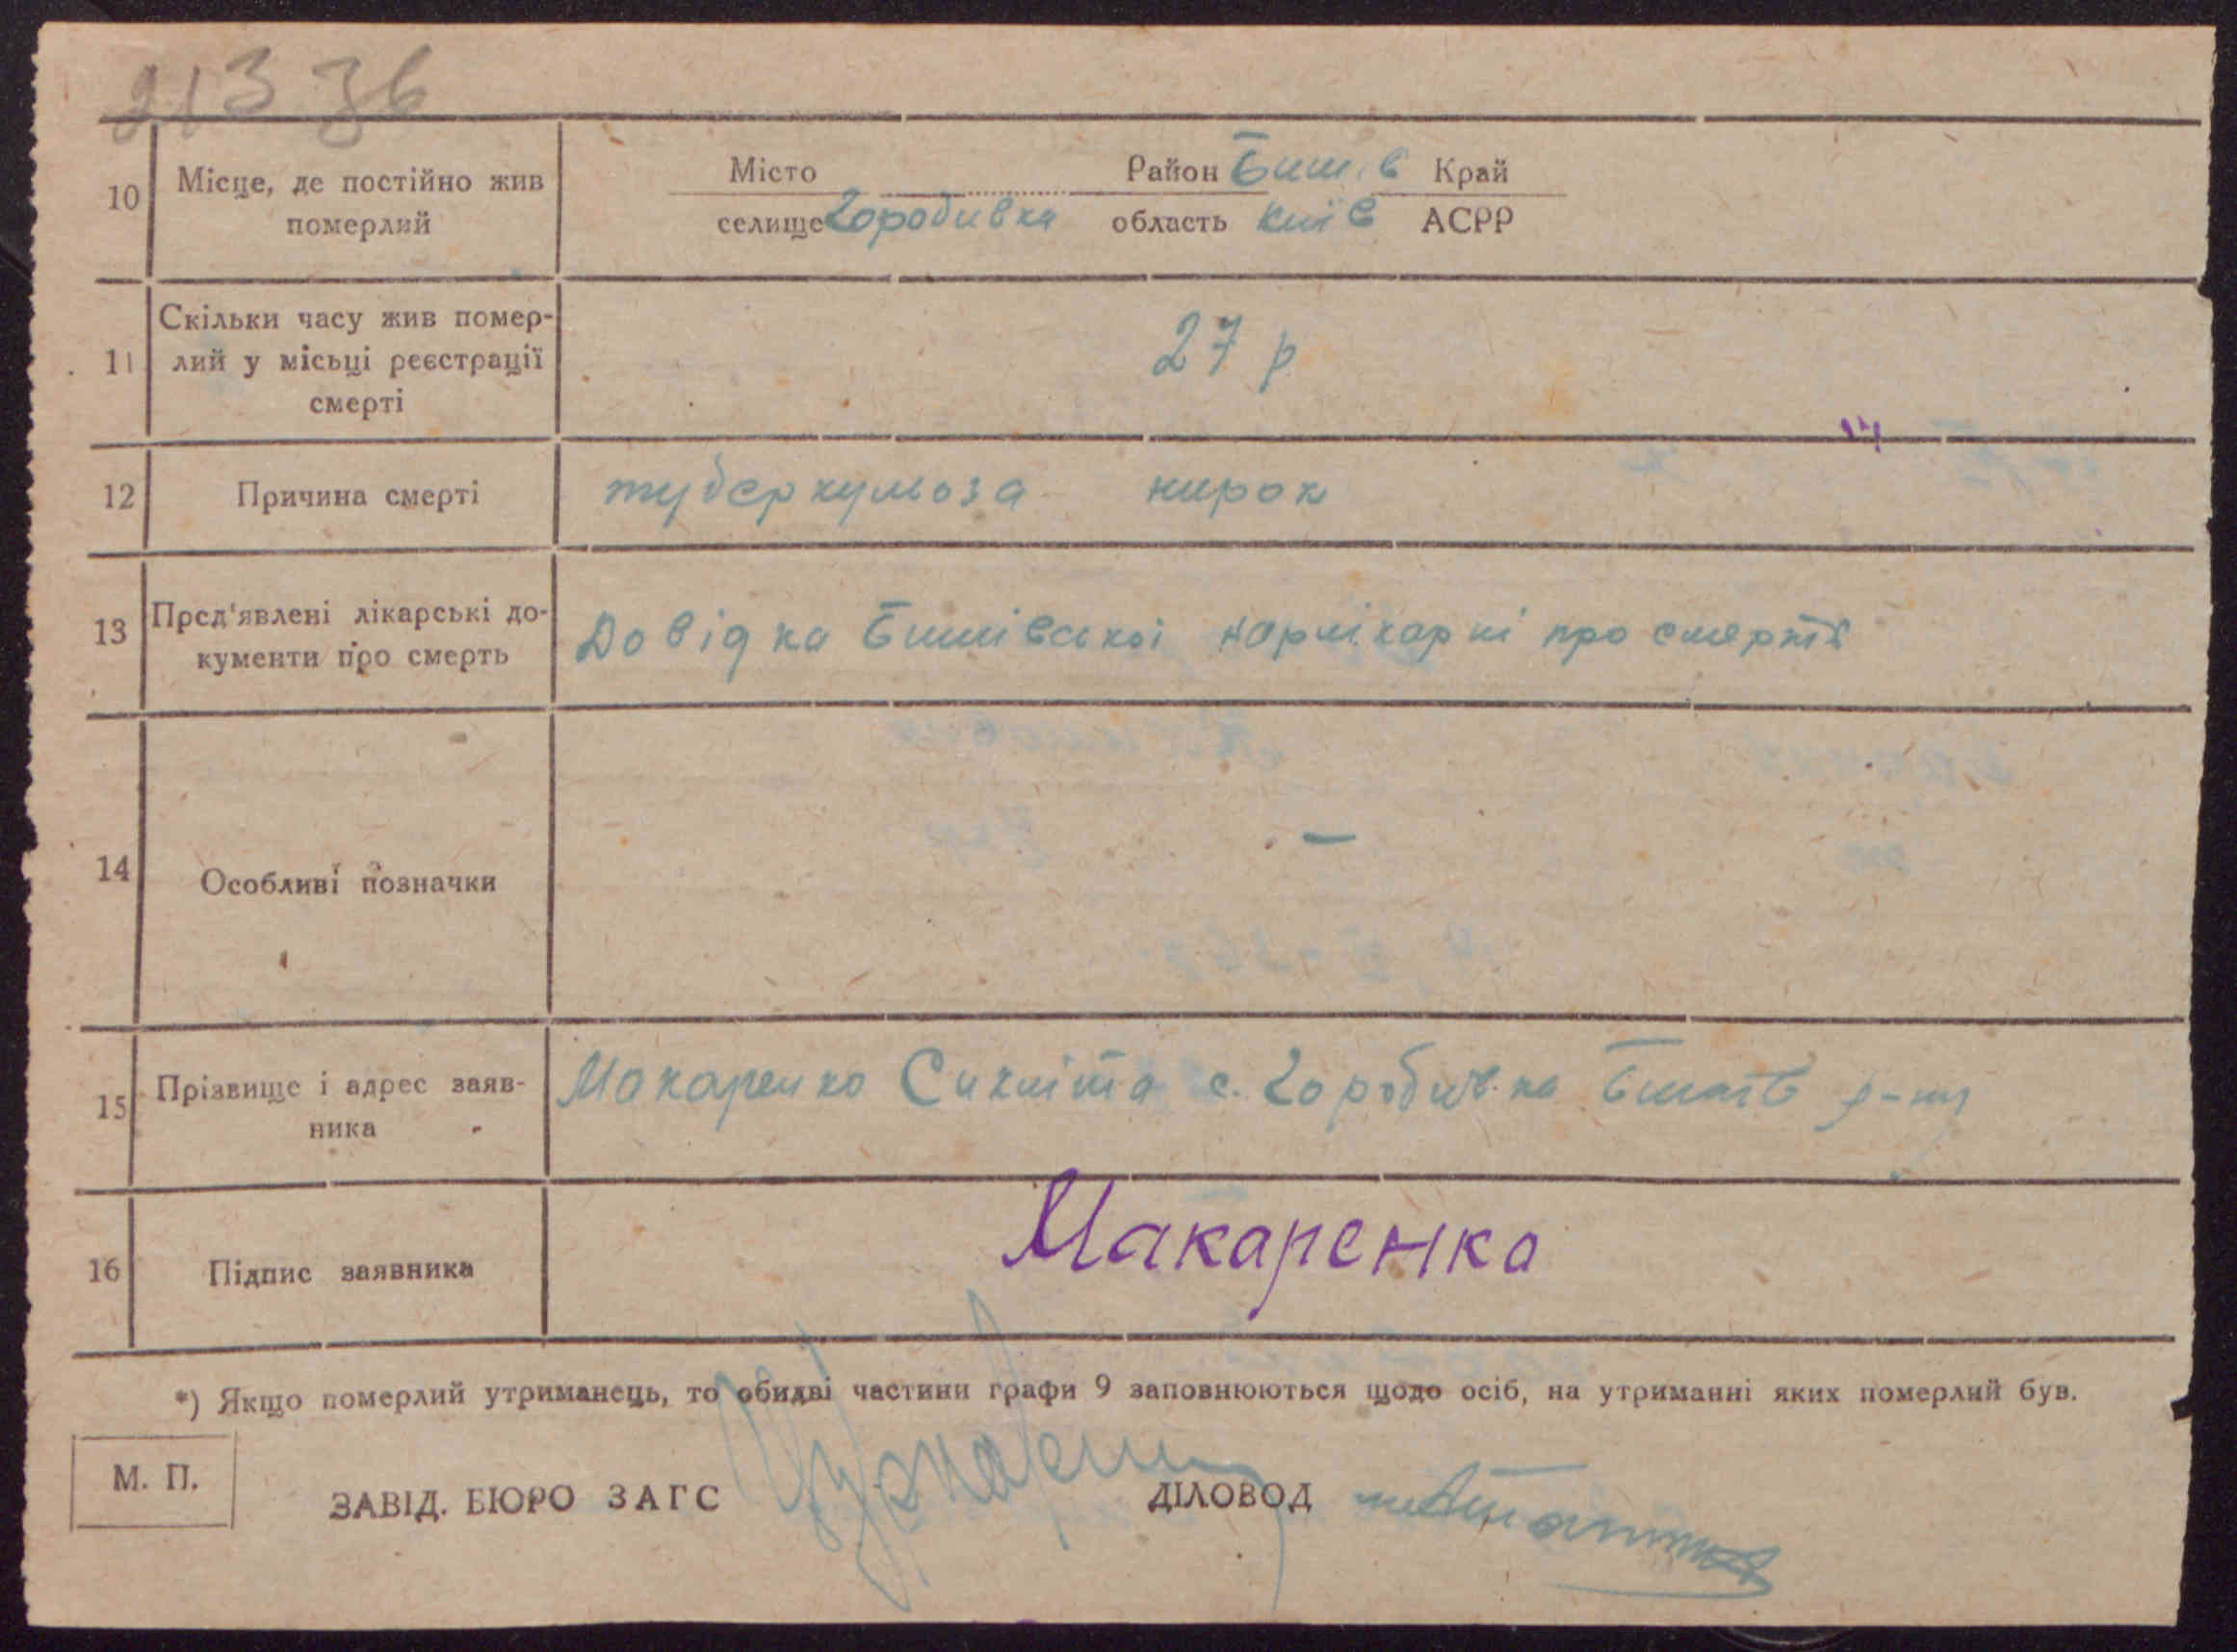 213 36
10 Місце, де постійно жив Місто Район Бишів Край
померлий селище Городивка область Київ АСРР
11 Скільки часу жив помер-
лий у місьці реєстрації 27 р
смерті
12 Причина смерті туберкульоза нирок
13 Пред'явлені лікарські до- Довідка Бишівської нарлікарні про смерть
кументи про смерть
14 Особливі позначки —
15 Прізвище і адрес заяв- Макаренко Сикліта с. Городивка Бишів р-ну
ника
16 Підпис заявника Макаренка
*) Якщо померлий утриманець, то обидві частини графи 9 заповнюються щодо осіб, на утриманні яких померлий був.
М. П.
ЗАВІД. БЮРО ЗАГС ДІЛОВОД